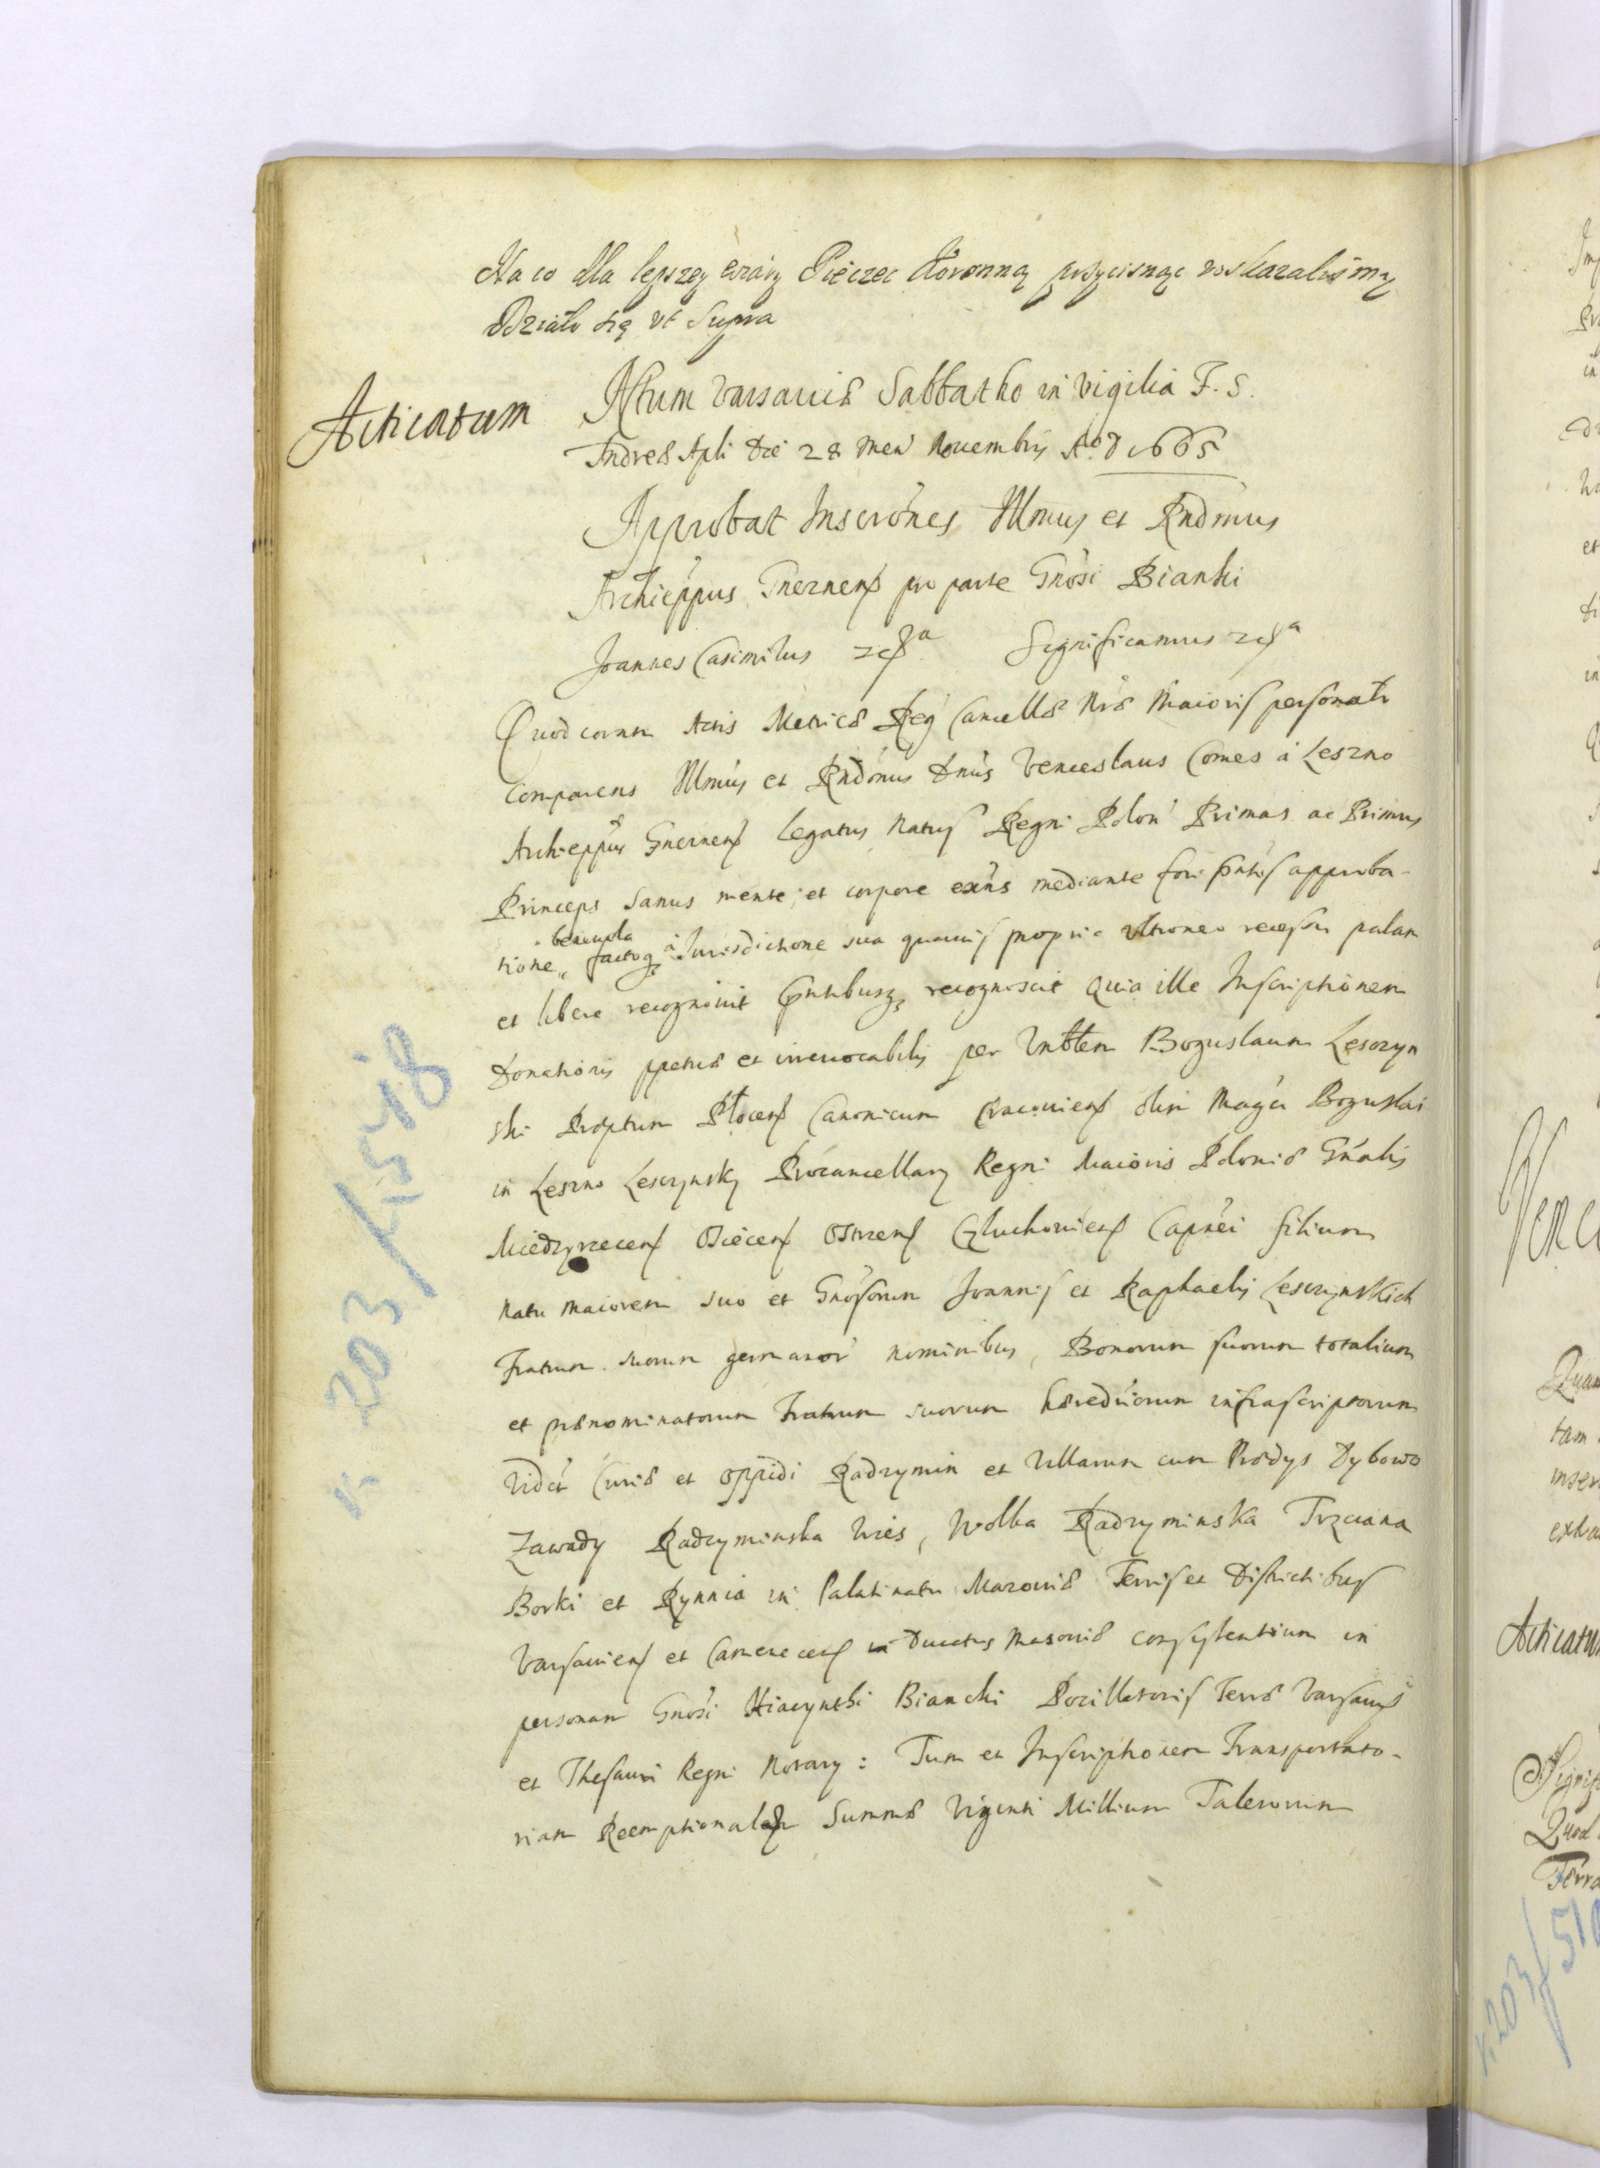 Na co dla lepszey wiary Pieczęc Koronną przycisnąc roskazalismy
Działo się vt Supra
Acticatum
Actum Varsaviæ Sabbatho in Vigilia F. S.
Andreæ Apli Die 28 Mens Novembris Aº D 1665
Approbat Inscrónes Illmus et Rndmus
Archieppus Gneznens pro parte Gnosi Bianki
Joannes Casimirus &c Significamus &c
Quod coram Actis Metrices Reg Cancellæ Nræ Maioris personalr
Comparens Illmus et Rndmus Dnus Venceslaus Comes à Leszno
Archieppus Gneznens Legatus Natus Regni Polon Primas ac Primus
Princeps Sanus mente et corpore exńs mediante fori pntis approba-
benevola
tione factoq à Jurisdictione sua quavis propria ultroneo recessu palam
et libere recognovit pntibusq recognoscit Quia ille Inscriptionem
Donationis ppetuæ et irrevocabilis per Vnblem Boguslaum Lesczyn
ski Præptum Plocens Canonicum Cracoviens olim Magci Boguslai
in Leszno Lesczynsky Procancellary Regni Maioris Poloniæ Gnalis
Miedzyrzecens Osiecens Ostrzens Czluchoviens Capnei filium
natu maiorem suo et Gnosorum Joannis et Raphaelis Lesczynskich
Fratrum suorum germanor nominibus, Bonorum suorum totalium
et prænominatorum Fratrum suorum hæreditiorum infrascriptorum
Vidct Curiæ et Oppidi Radzymin et Villarum cum Prædys Dybowo
Zawady Radzyminska Wies, Wolka Radzyminska Trzciana
Borki et Rynnia in Palatinatu Mazoviæ Terris et Districtibus
Varsaviens et Camenecens in Ducatus Masoviæ consystentium in
personam Gnosi Hiacynthi Bianchi Pocillatoris Terræ Varsavis
et Thesauri Regni Notary: Tum et Inscriptionem Transportato-
riam Reemptionalem Summæ Viginti Millium Talerorum
k. 203/518
Acticatum
k. 203/51